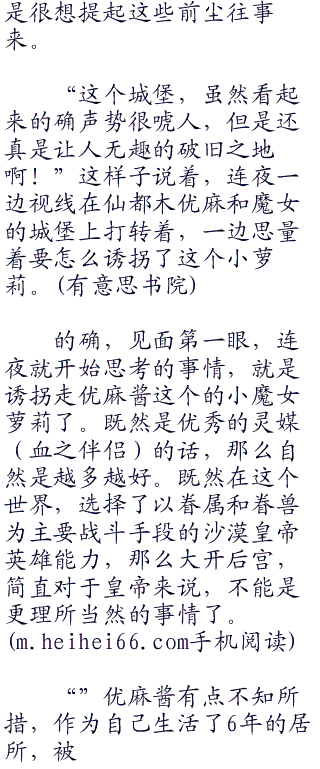 是很想提起这些前尘往事
来。
“这个城堡，虽然看起
来的确声势很唬人，但是还
真是让人无趣的破旧之地
啊！”这样子说着，连夜一
边视线在仙都木优麻和魔女
的城堡上打转着，一边思量
着要怎么诱拐了这个小萝
莉。(有意思书院)
的确，见面第一眼，连
夜就开始思考的事情，就是
诱拐走优麻酱这个的小魔女
萝莉了。既然是优秀的灵媒
（血之伴侣）的话，那么自
然是越多越好。既然在这个
世界，选择了以眷属和眷兽
为主要战斗手段的沙漠皇帝
英雄能力，那么大开后宫，
简直对于皇帝来说，不能是
更理所当然的事情了。
(m.heihei66.com手机阅读)
“”优麻酱有点不知所
措，作为自己生活了6年的居
所，被